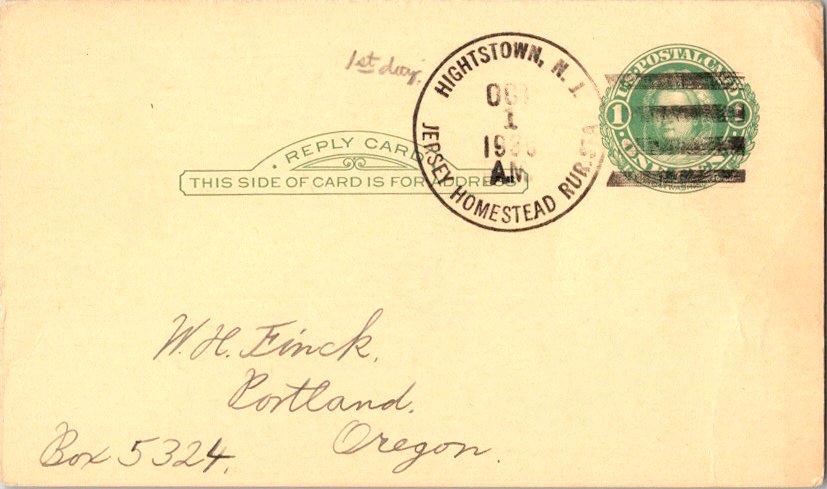 1st day.
HIGHTSTOWN, N. J.
OCT
1
AM
JERSEY HOMESTEAD RUR. STA
U.S. POSTAL CARD
1
ONE CENT
REPLY CARD
THIS SIDE OF CARD IS FOR ADDRESS
W. H. Finck.
Portland.
Oregon.
Box 5324.